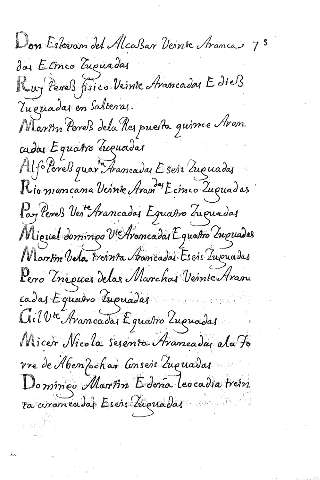 Don Estevan del Alcaßar Veinte Aranca- 7s
das E Cinco Tuguadas
Ruy Pereß fisico Veinte Arancadas E dieß
Tuguadas en Salteras.
Martin Pereß de la Respuesta quince Aran
cadas E quatro Tuguadas
Alfo Pereß quarta Arancadas E seis Tuguadas
Rio mancana Veinte Arandas E cinco Tuguadas
Pay Pereß Vte Arancadas E quatro Tuguadas
Miguel domingo Vte Arancadas E quatro Tuguadas
Martin Vela treinta Arancadas E seis Tuguadas
Pero Ynegues de las Marchas Veinte Aran
cadas E quatro Tuguadas
Gil Vte Arancadas E quatro Tuguadas
Micer Nicola sesenta Arancadas a la To
rre de Abenzohar Con seis Tuguadas
Domingo Martin E doña leocadia trein
ta arancadas E seis Tuguadas